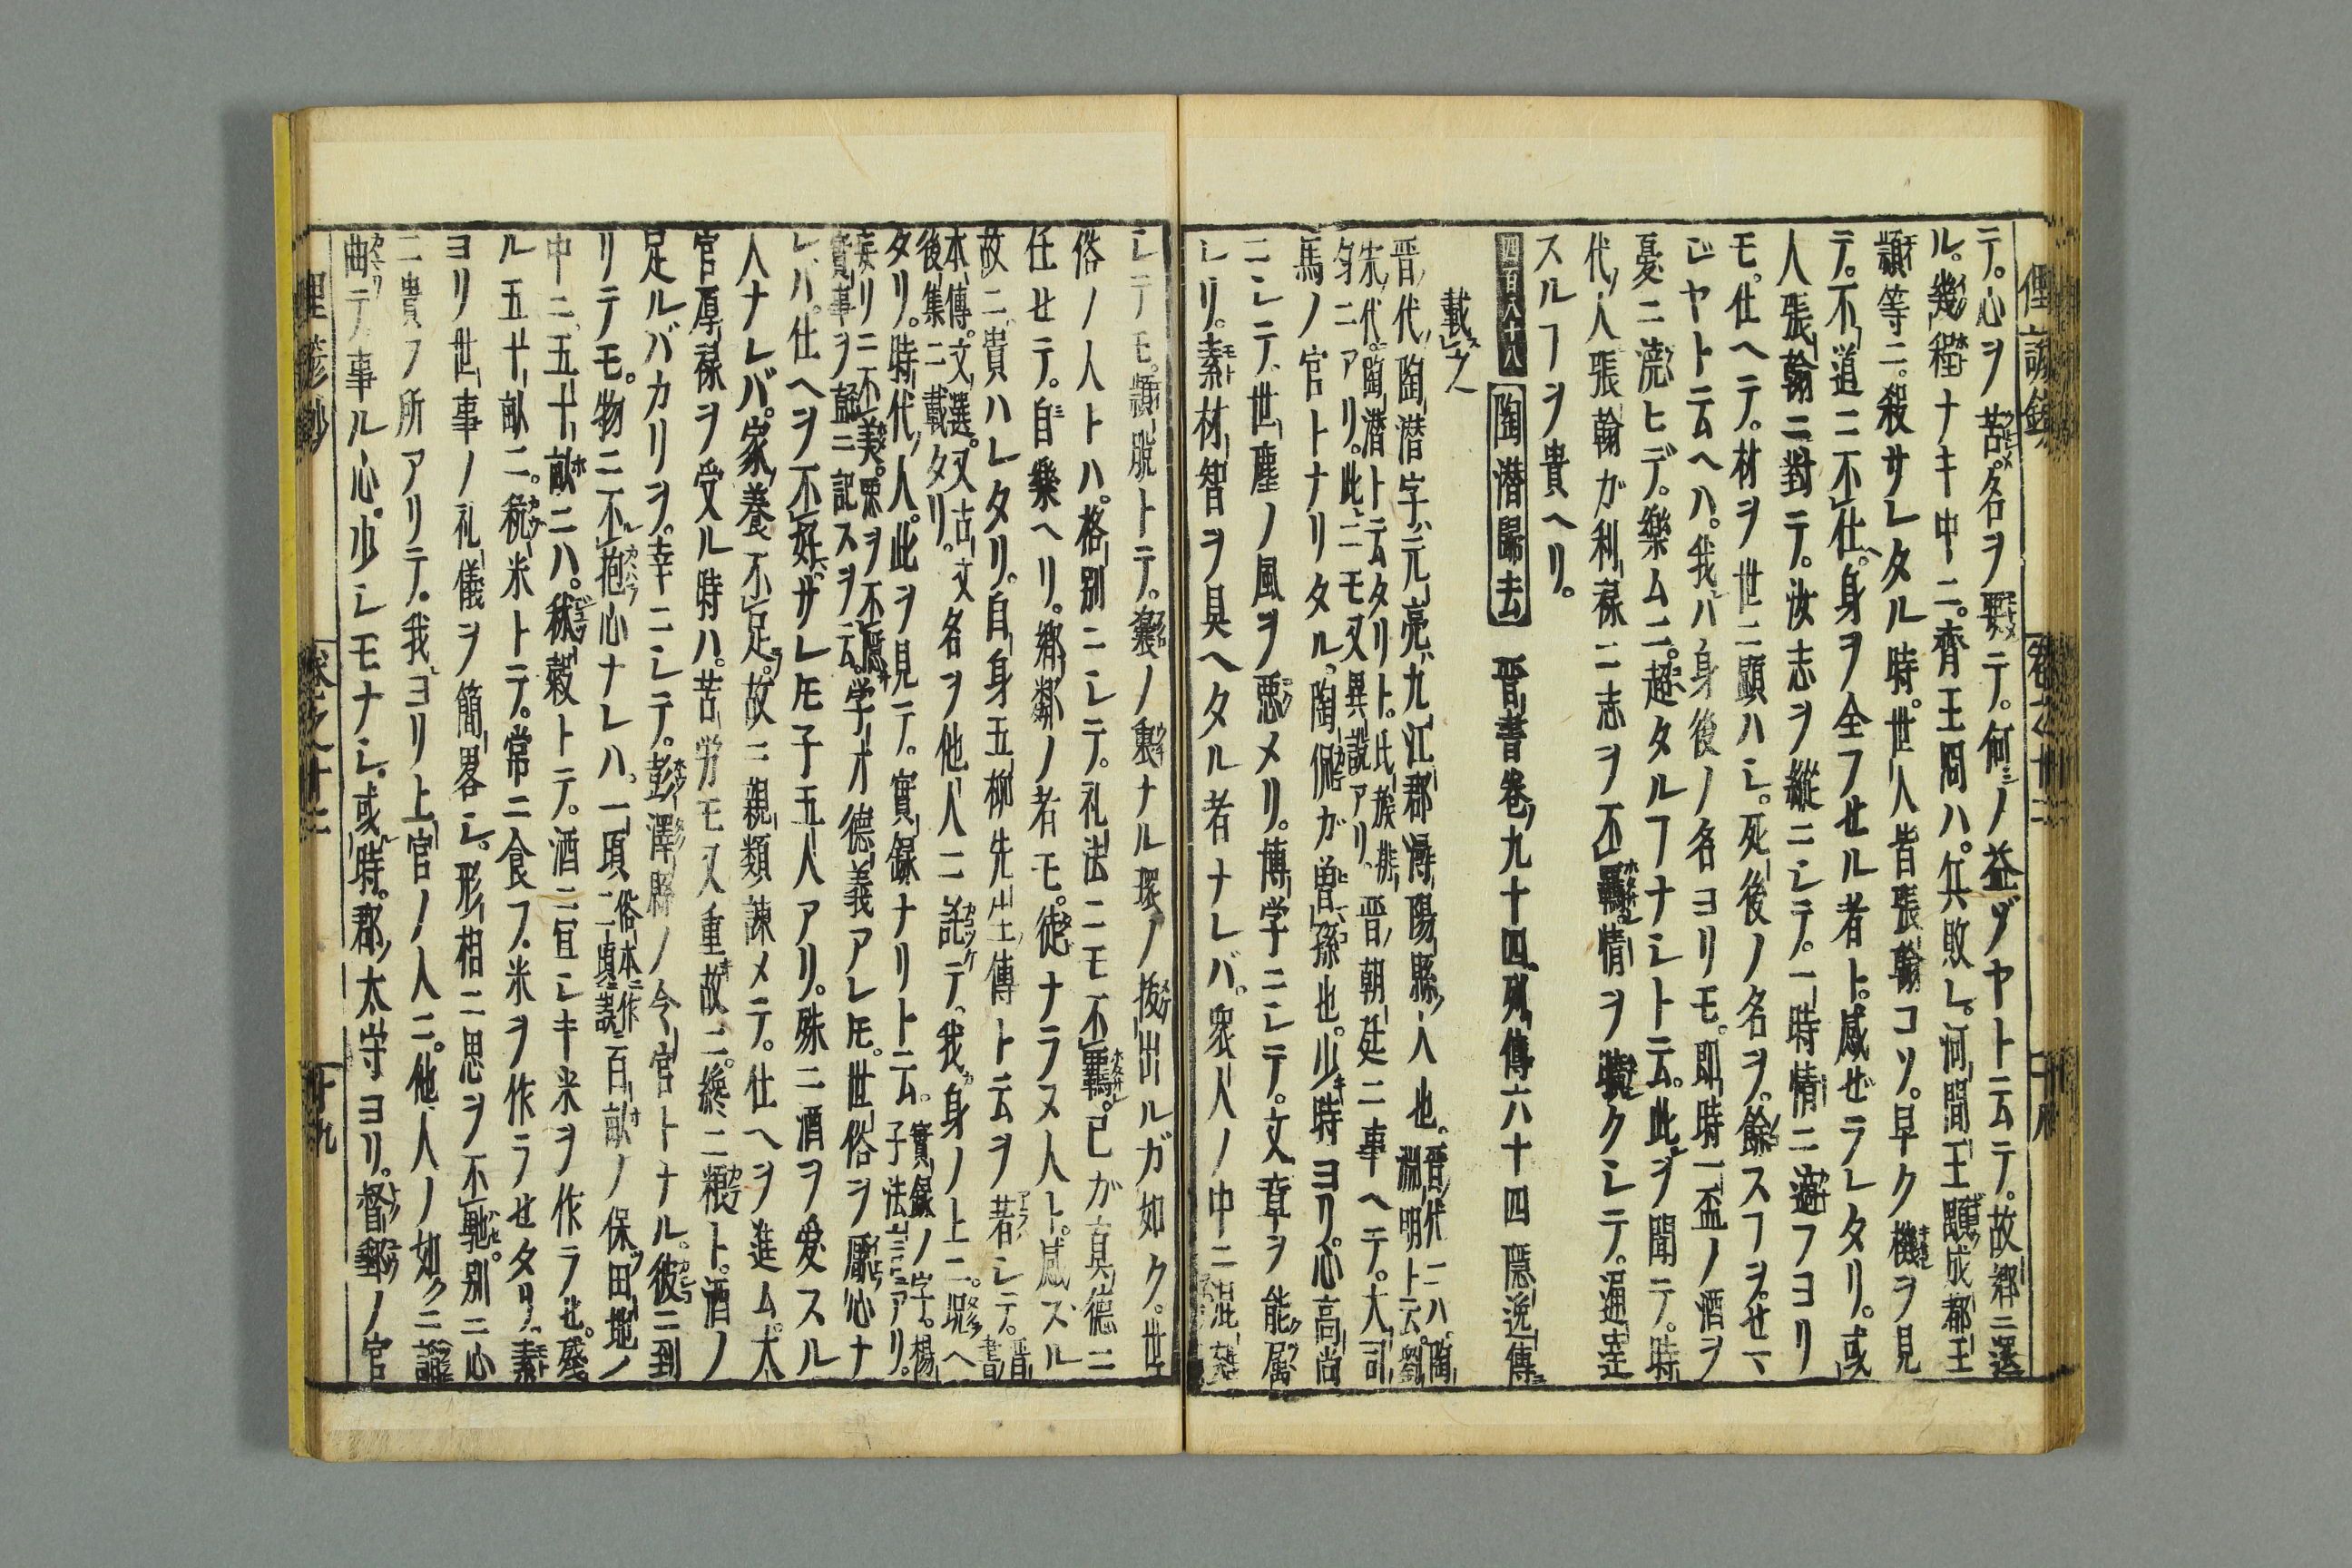 テ。心ヲ苦。名ヲ要テ。何ノ益ゾヤト云テ。故郷ニ還
ル。幾程ナキ中ニ。齊王冏ハ。兵敗レ。河間王顒成都王
頴等ニ。殺サレタル時。世人皆張翰コソ。早ク機ヲ見
テ。不道ニ不仕。身ヲ全フせル者ト。感ぜラレタリ。或
人張翰ニ對テ。汝志ヲ縱ニシテ。一時情ニ適フヨリ
モ。仕ヘテ。材ヲ世ニ顕ハシ。死後ノ名ヲ。餘スフヲせマ
ジヤト云ヘハ。我ハ身後ノ名ヨリモ。即時一盃ノ酒ヲ
憂ニ澆ヒデ。樂ムニ。超タルフナシト云。此ヲ聞テ。時
代人張翰ガ利禄ニ志ヲ不羈情ヲ曠クシテ。逼迮
スルフヲ貴ヘリ。
四百八十八 陶潜歸去 晋書巻九十四列傳六十四隠逸傳
載之
晋代陶潜字元亮九江郡潯陽縣人也。晋代ニハ。陶淵明ト云。劉
宋代。陶潜ト云タリト。氏族排晋朝廷ニ事ヘテ。大司
身ニアリ。此ニモ又異説アリ。
馬ノ官トナリタル。陶侃ガ曽孫也。少時ヨリ。心高尚
ニシテ。世塵ノ風ヲ悪メリ。博学ニシテ。文章ヲ能属
レリ。素材智ヲ具ヘタル者ナレバ。衆人ノ中ニ混雑
シテモ。頴脱トテ。嚢ノ裏ナル環ノ抜出ルガ如ク。世
俗ノ人トハ。格別ニシテ。礼法ニモ不羈。已ガ真徳ニ
任せテ。自樂ヘリ。郷鄰ノ者モ。徒ナラヌ人ト。感ズル
故ニ貴ハレタリ。自身五柳先生傳ト云ヲ著シテ。晋書
本傳。文選。又古文
後集ニ載タリ。名ヲ他人ニ託テ。我身ノ上ニ。況ヘ
タリ。時代人。此ヲ見テ。實録ナリト云。實録ノ字。楊子法言ニアリ。
妄リニ不美。悪ヲ不隠
實事ヲ盡ニ記スヲ云。学才徳義アレ𪜈。世俗ヲ厭心ナ
レハ。仕ヘヲ不好サレ𪜈子五人アリ。殊ニ酒ヲ愛スル
人ナレバ。家養不足。故ニ親類諫メテ。仕ヘヲ進ム。太
官厚禄ヲ受ル時ハ。苦労モ又重故ニ。纔ニ糧ト。酒ノ
足ルバカリヲ。幸ニシテ。彭澤縣ノ令官トナル。彼ニ到
リテモ。物ニ不抱心ナレハ。一項俗本ニ作二頃誤百畝ノ保田地ノ
中ニ五十畝ニハ。秫穀トテ。酒ニ宜シキ米ヲ作ラせ。殘
ル五十畝ニ。秔米トテ。常ニ食フ米ヲ作ラせタリ。素
ヨリ世事ノ礼儀ヲ簡畧シ。形相ニ思ヲ不馳。別ニ心
ニ貴フ所アリテ。我ヨリ上官ノ人ニ。他人ノ如クニ諂
曲テ事ル心。少シモナシ。或時。郡太守ヨリ。督郵ノ官